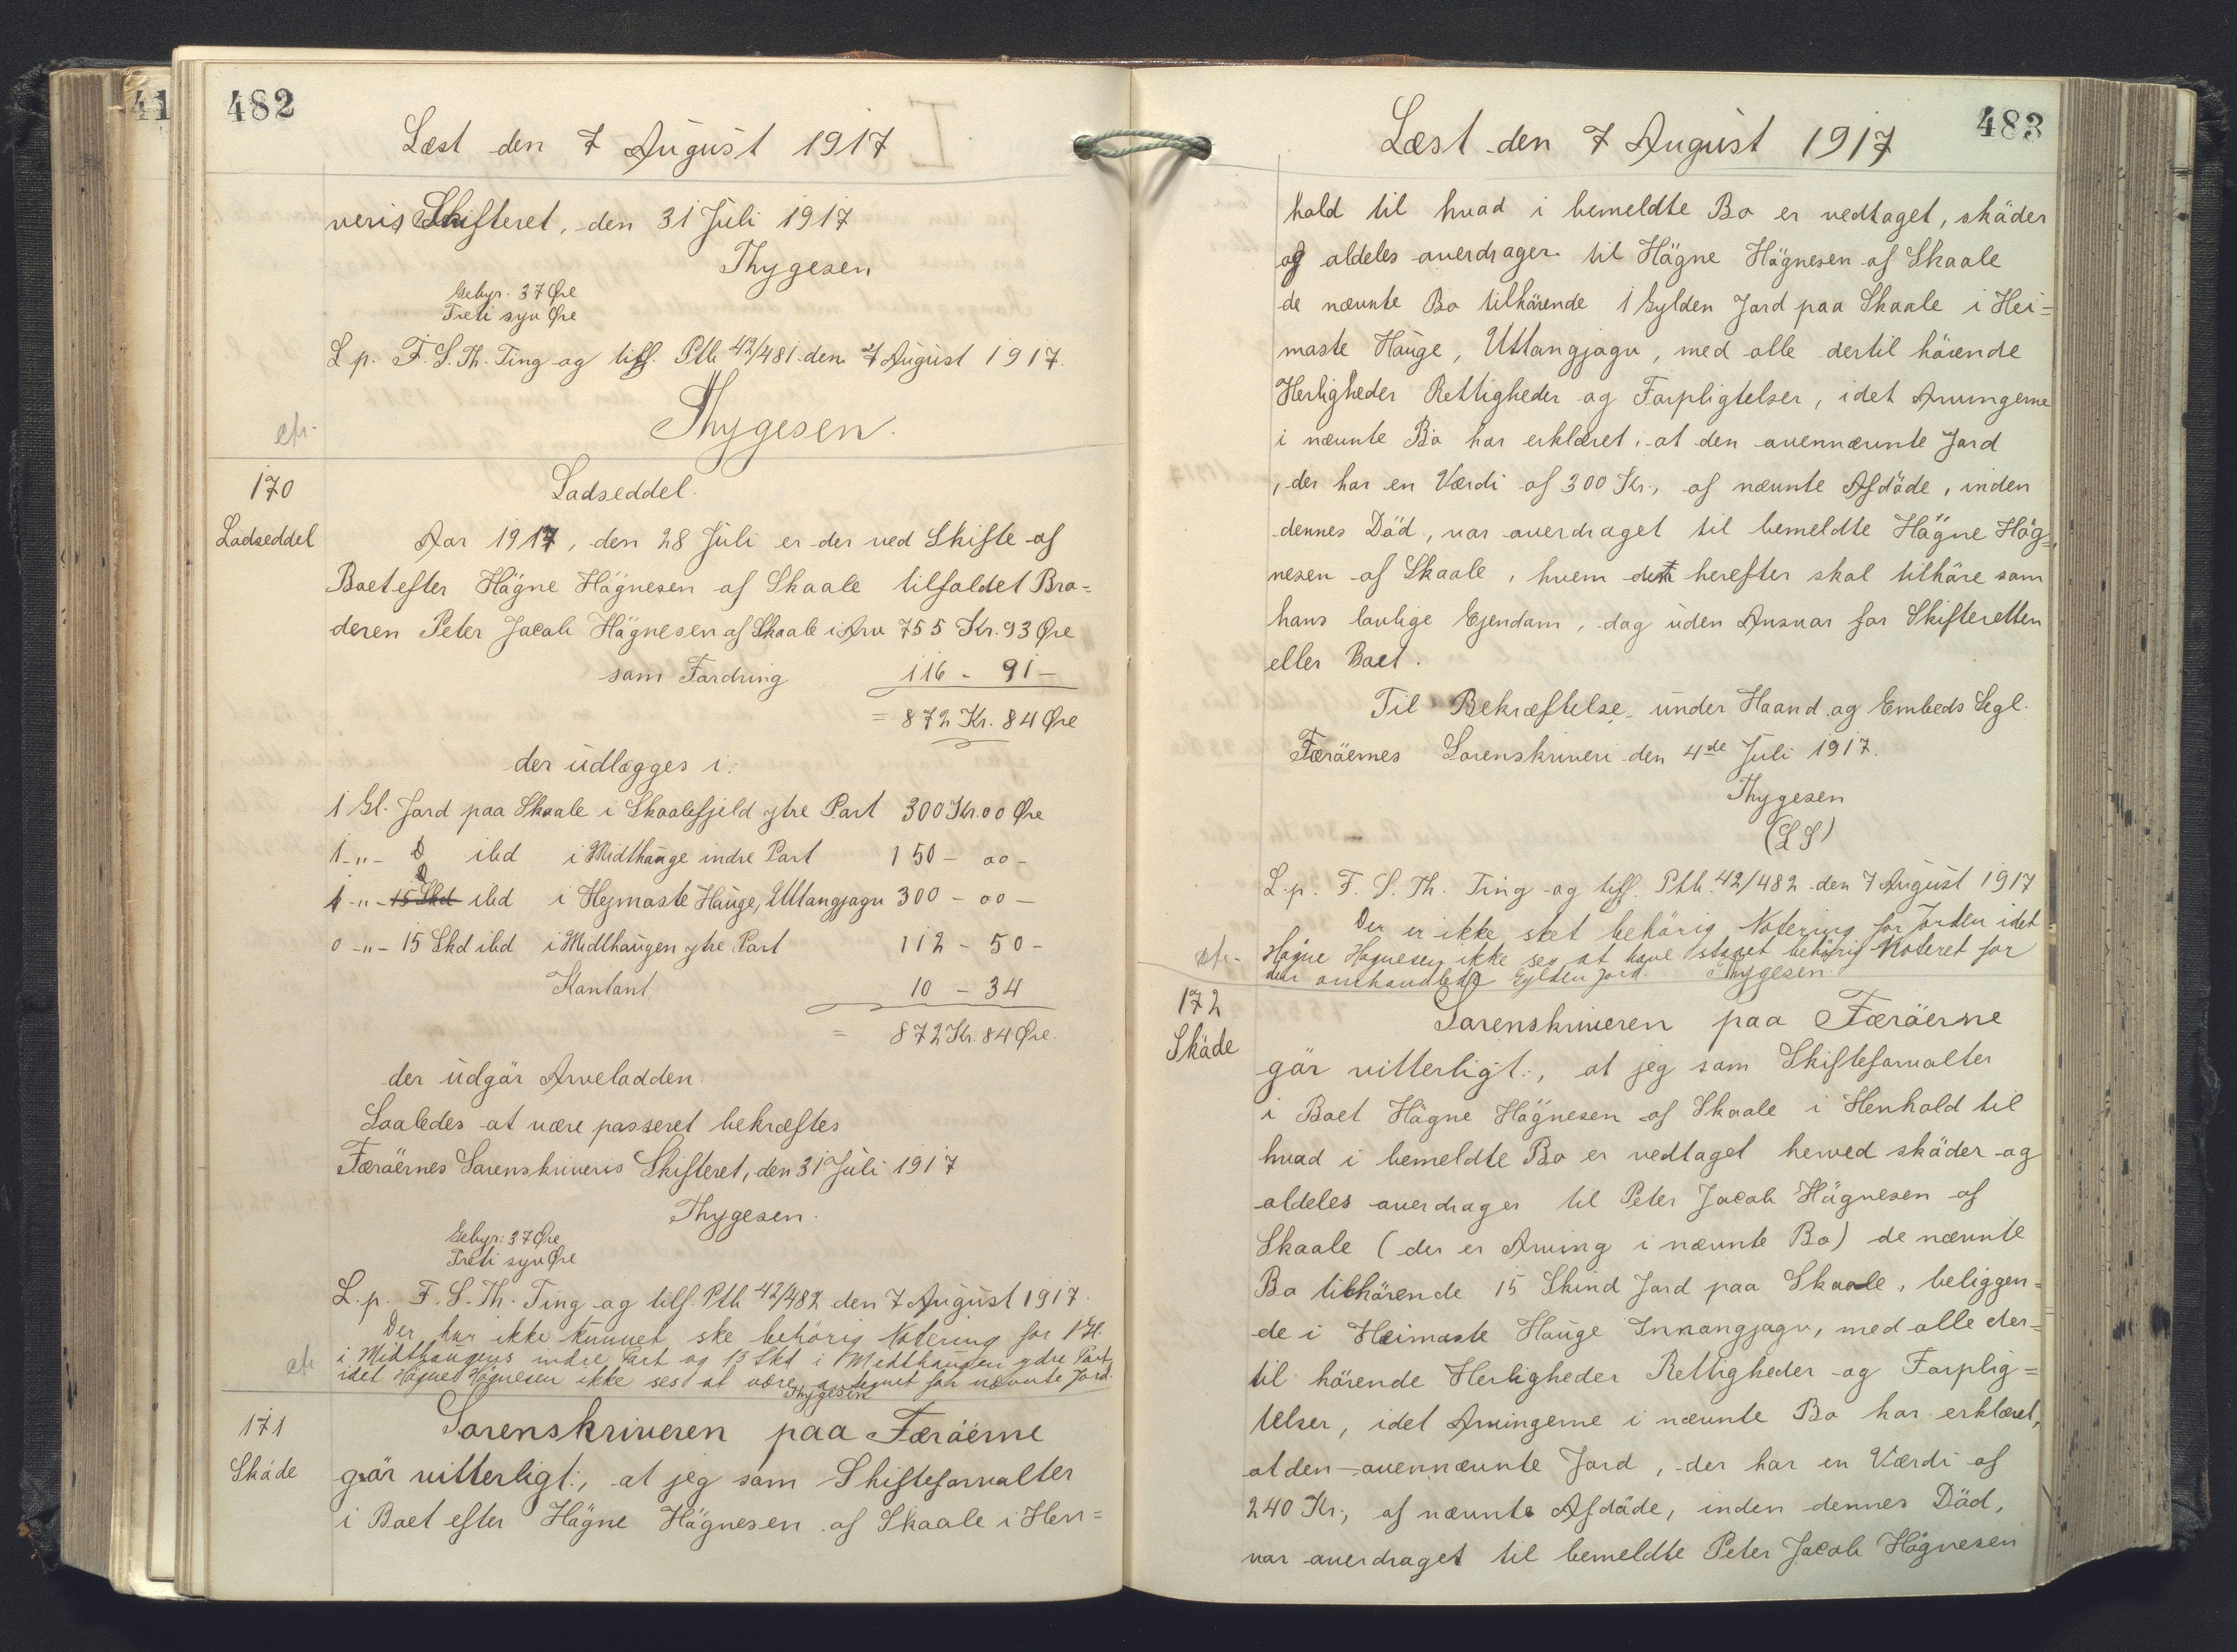 482
Læst den 7 August 1917
veris Skifteret, den 31 Juli 1917
Thygesen
Gebyr. 37 Øre
Treti syv Øre
L. p. F. S. Th. Ting og tilf. Ptb 42/481 den 7 August 1917.
Thygesen.
170
Lodseddel.
Lodseddel
Aar 1917, den 28 Juli er der ved Skifte af
Boet efter Högne Högnesen af Skaale tilfaldet Bro=
deren Peter Jacob Högnesen af Skaale i Arv 755 Kr. 93 Øre
som Fordring 116 - 91 -
= 872 Kr. 84 Øre
der udlægges i:
1 Gl. Jord paa Skaale i Skaalefjeld ytre Part 300 Kr. 00 Øre
1 -"- 0 ibd i Midthauge indre Part 150 - 00 -
1 -"- 15 Skd ibd i Hejmaste Hauge, Uttangjagv 300 - 00 -
0 -"- 15 Skd ibd i Midthaugen ytre Part 112 - 50 -
Kontant 10 - 34
= 872 Kr. 84 Øre.
der udgör Arvelodden.
Saaledes at være passeret bekræftes
Færöernes Sorenskriveris Skifteret, den 31 Juli 1917
Thygesen.
Gebyr: 37 Øre
Treti syv Øre
L. p. F. S. Th. Ting og tilf. Ptb 42/482 den 7 August 1917.
Der har ikke kunnet ske behörig Notering for 1 Gl.
i Midthaugens indre Part og 15 Skd i Midthaugen ydre Part,
idet Högne Högnesen ikke ses at være antegnet for nævnte Jord.
Thygesen
171
Sorenskriveren paa Færöerne
Sköde
gör vitterligt:, at jeg som Skifteforvalter
i Boet efter Högne Högnesen af Skaale i Hen=
483
Læst den 7 August 1917
hold til hvad i bemeldte Bo er vedtaget, sköder
og aldeles overdrager til Högne Högnesen af Skaale
de nævnte Bo tilhörende 1 Gylden Jord paa Skaale i Hei=
maste Hauge, Uttangjagv, med alle dertil hörende
Herligheder Rettigheder og Forpligtelser, idet Arvingerne
i nævnte Bo har erklæret, at den ovennævnte Jord
, der har en Værdi af 300 Kr., af nævnte Afdöde, inden
dennes Död, var overdraget til bemeldte Högne Hög=
nesen af Skaale, hvem det herefter skal tilhöre som
hans lovlige Ejendom, dog uden Ansvar for Skifteretten
eller Boet.
Til Bekræftelse under Haand og Embeds Segl.
Færöernes Sorenskriveri den 4de Juli 1917.
Thygesen
(L S)
L. p. F. S. Th. Ting og tilf. Ptb. 42/482 den 7 August 1917
Der er ikke sket behörig Notering for Jorden idet
Högne Högnesen ikke ses at have staaet behörig Noteret for
den omhandlede Gylden Jord. Thygesen.
172
Sorenskriveren paa Færöerne
Sköde
gör vitterligt:, at jeg som Skifteforvalter
i Boet Högne Högnesen af Skaale i Henhold til
hvad i bemeldte Bo er vedtaget herved sköder og
aldeles overdrager til Peter Jacob Högnesen af
Skaale (der er Arving i nævnte Bo) de nævnte
Bo tilhörende 15 Skind Jord paa Skaale, beliggen=
de i Heimaste Hauge Innangjagv, med alle der=
til hörende Herligheder Rettigheder og Forplig=
telser, idet Arvingerne i nævnte Bo har erklæret,
at den ovennævnte Jord, der har en Værdi af
240 Kr., af nævnte Afdöde, inden dennes Död,
var overdraget til bemeldte Peter Jacob Högnesen